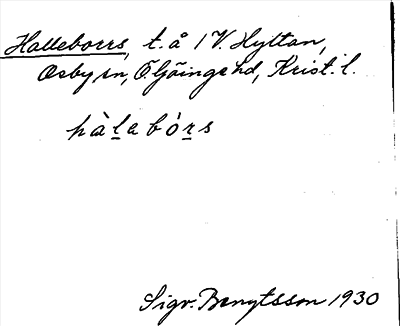 Halleborrs, t. å 1 V. Hyltan,
Osby sn, Ö. Göinge hd, Krist. l.
hàl̲abór̲s
Sigv. Bengtsson 1930